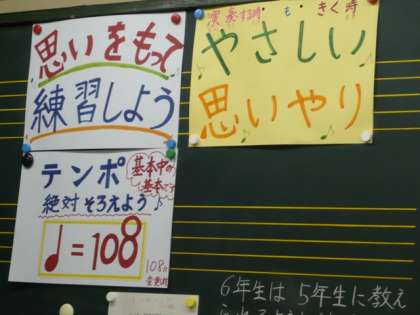 思いをもって
練習しよう
演奏する時・も・きく時
やさしい
思いやり
テンポ
基本中の
基本です
絶対そろえよう♪
♩=108
108は
6年生は 5年生に教え